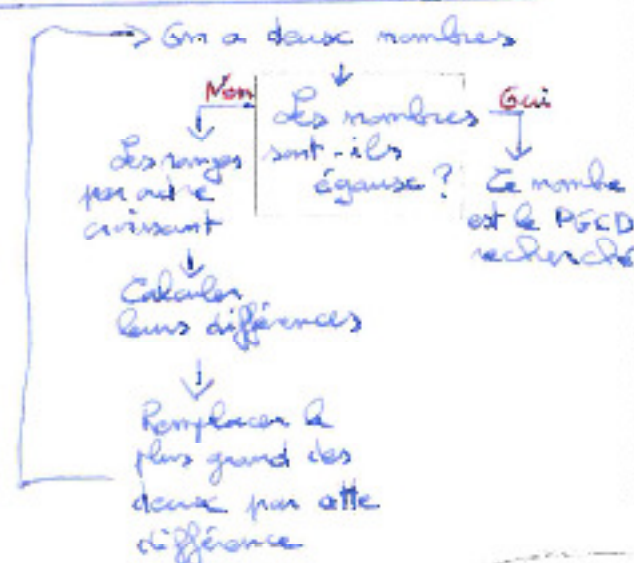 On a deux nombres
Non
Les nombres
sont-ils
égaux ?
Oui
Les ranger
par ordre
croissant
Ce nombre
est le PGCD
recherché
Calculer
leurs différences
Remplacer le
plus grand des
deux par cette
différence